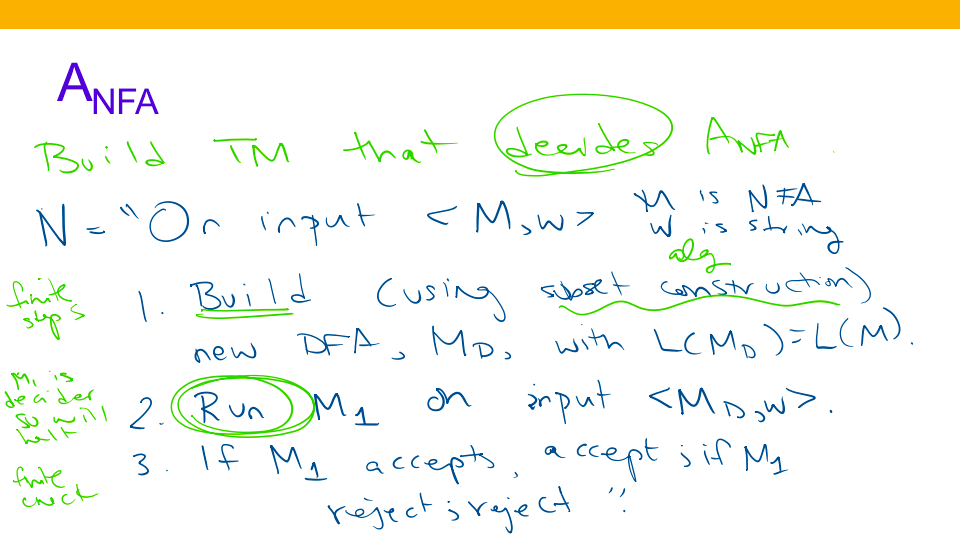 A_NFA
Build TM that decides A_NFA.
N = "On input <M,w> M is NFA
w is string
alg
finite steps
1. Build (using subset construction)
new DFA, M_D, with L(M_D)=L(M).
M_1 is decider so will halt
2. Run M_1 on input <M_D,w>.
3. If M_1 accepts, accept; if M_1
finite check
reject; reject".